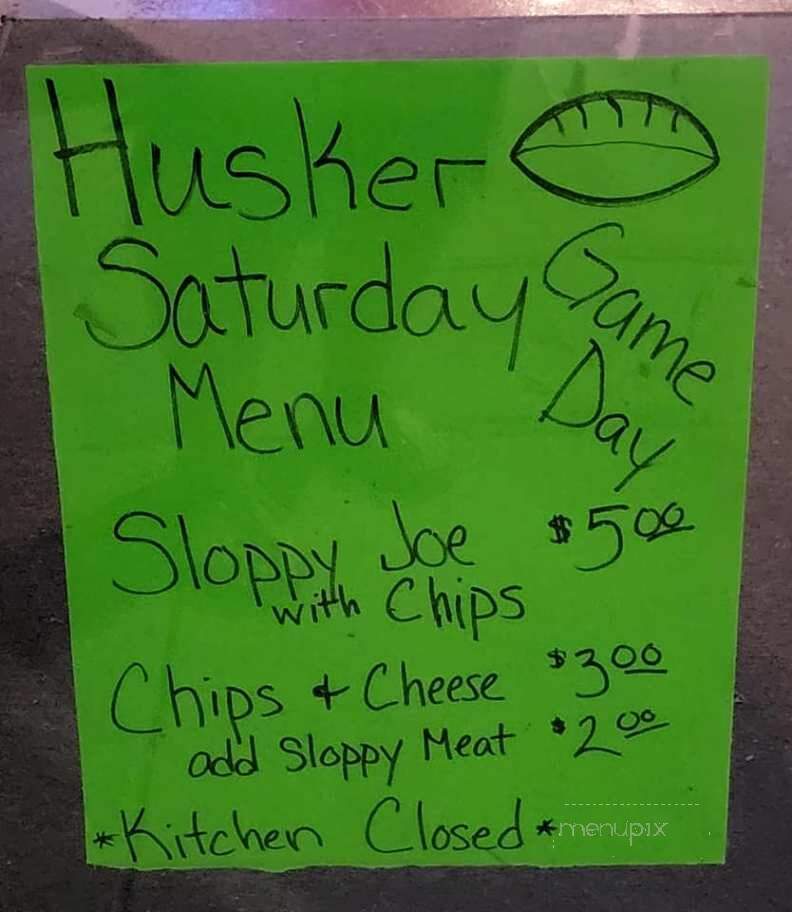 Husker
Saturday
Menu
Game
Day
Sloppy Joe $5.00
with Chips
Chips + Cheese $3.00
add Sloppy Meat $2.00
*Kitchen Closed*
menupix